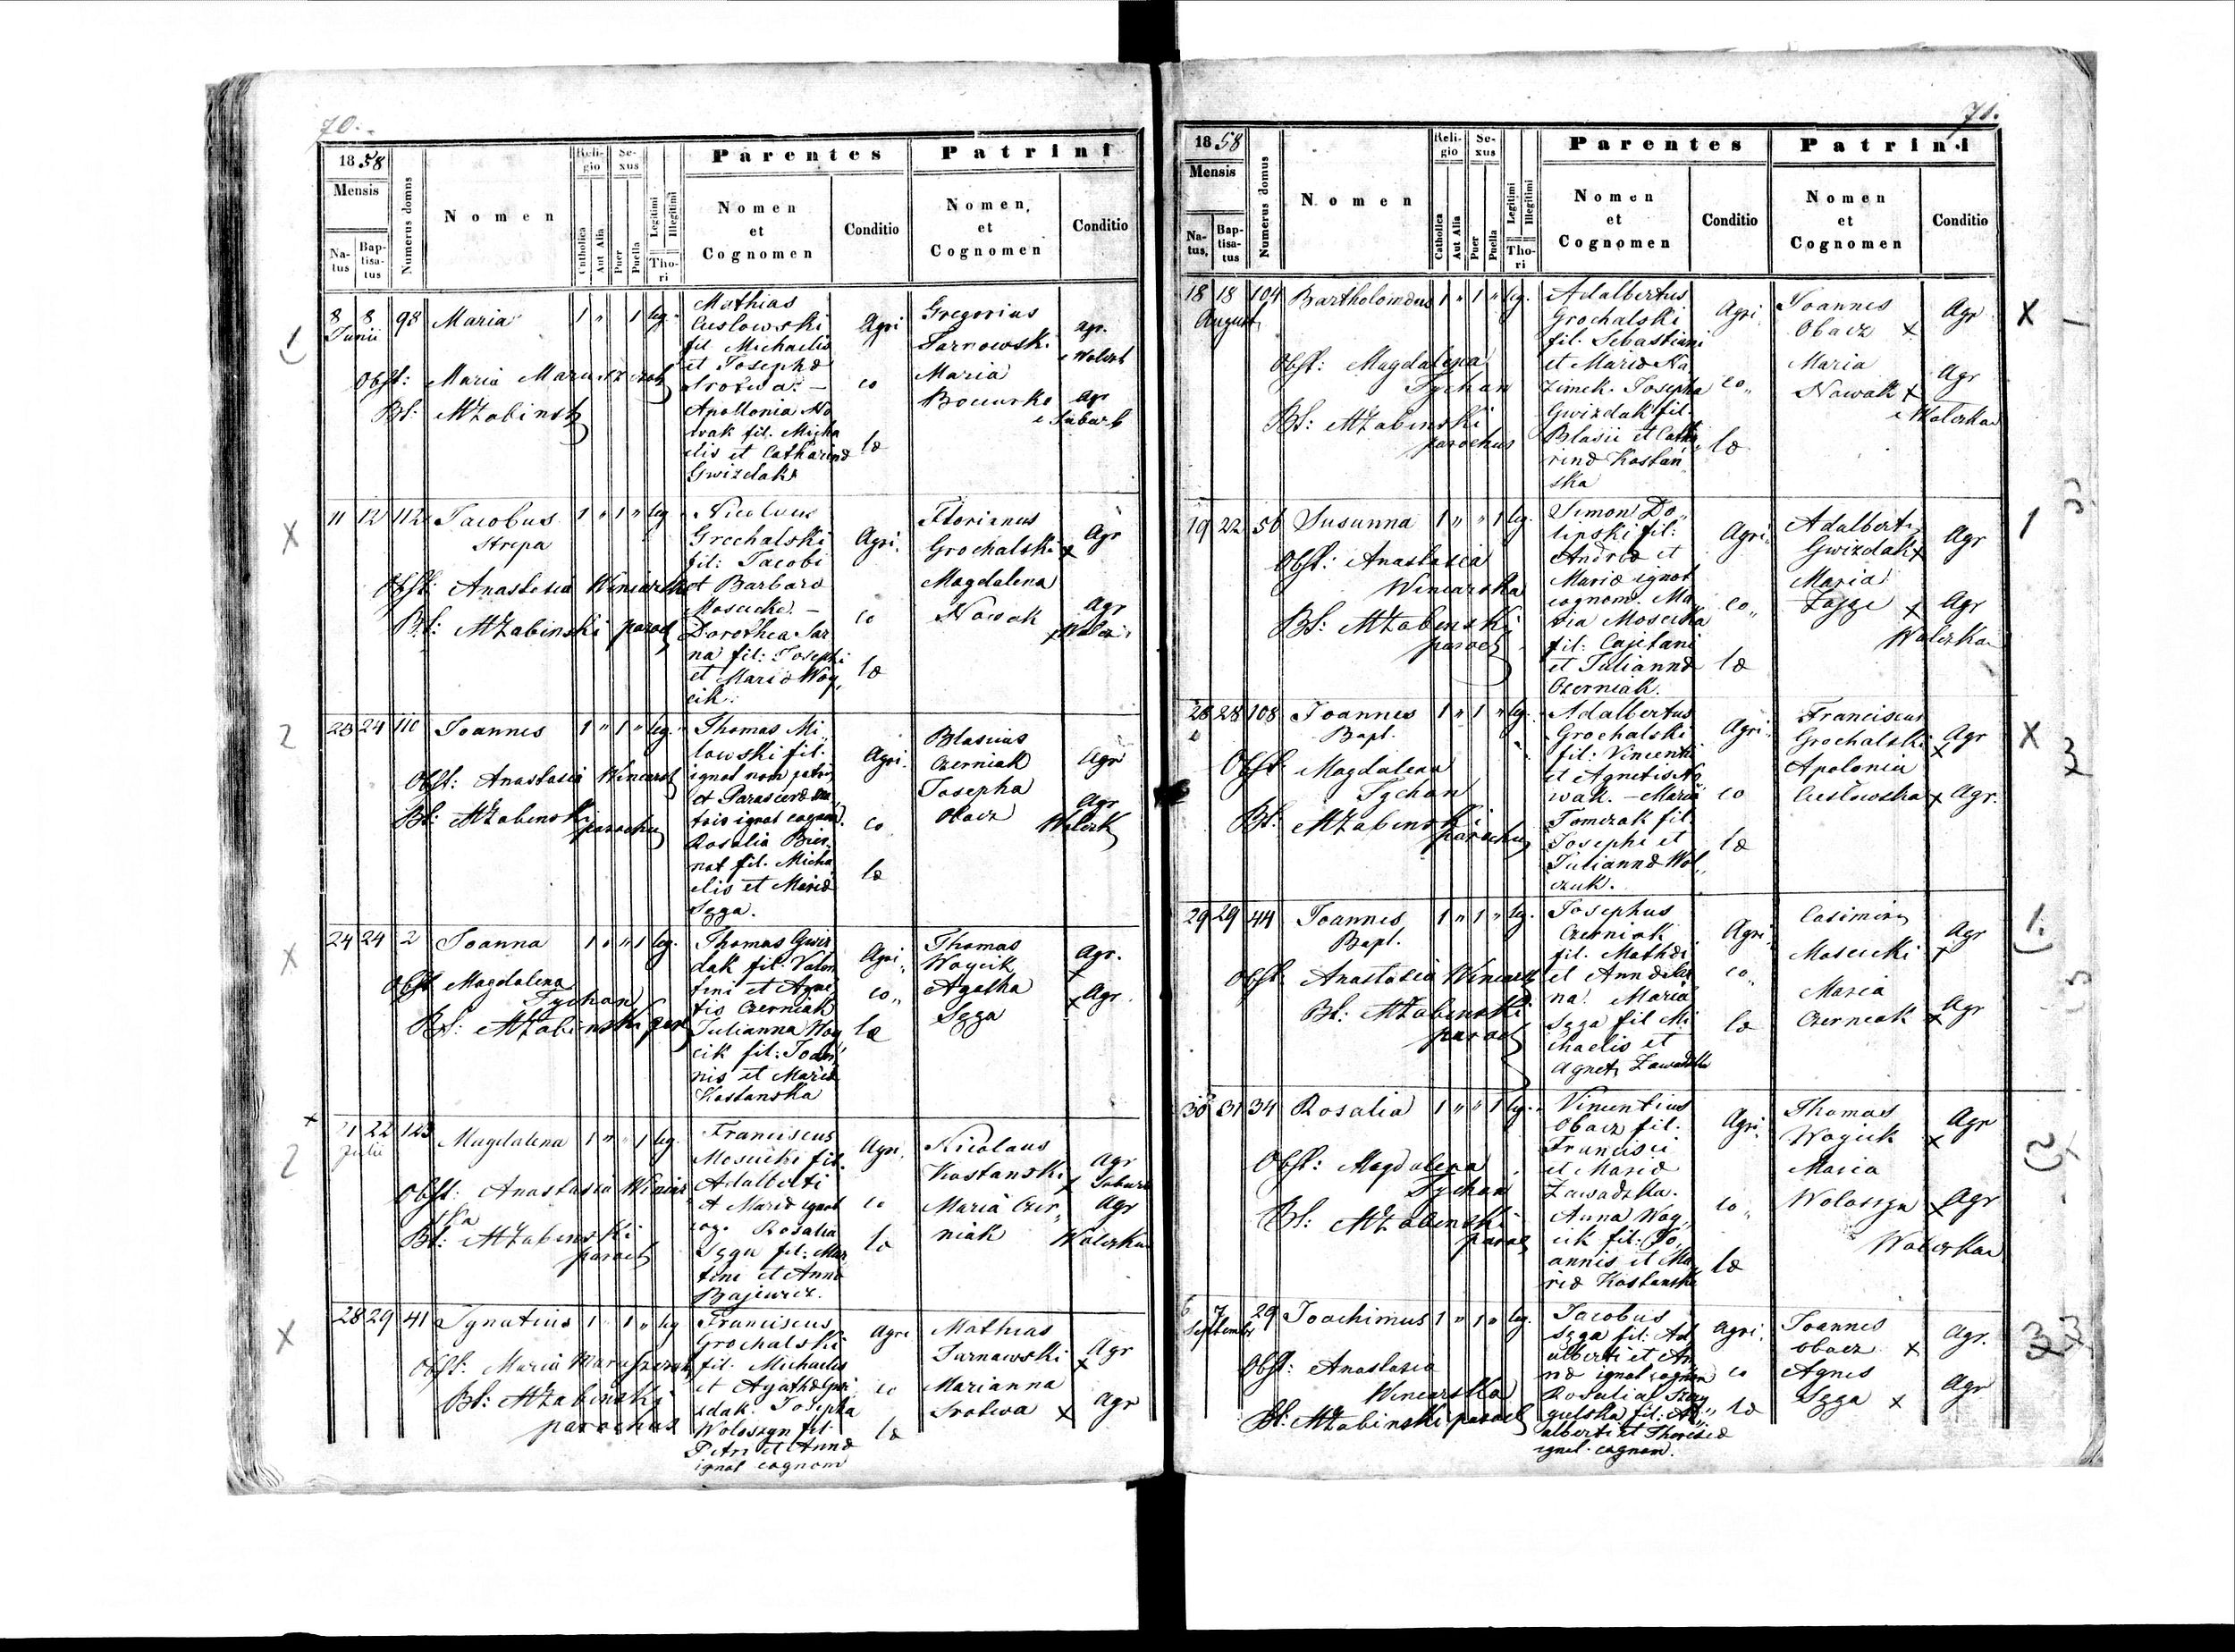 70.
1858
Mensis
Natus
Baptisatus
Numerus domus
Nomen
Religio
Catholica
Aut Alia
Sexus
Puer
Puella
Legitimi
Illegitimi
Thori
Parentes
Nomen et Cognomen
Conditio
Patrini
Nomen, et Cognomen
Conditio
8 8 98 Maria 1 " 1 leg.
Junii
Obst: Maria
Bt: MZabinski
Mathias
Cieslowski
fil Michaelis
et Josephæ
Srotwa. —
Apollonia No
wak fil. Micha
elis et Catharinæ
Gwizdak
Agri
co
læ
Gregorius
Tarnowski
Maria
agr.
Agr
11 12 112 Jacobus 1 " 1 " leg
Strepa
Obst. Anastasia Winiarska
Bt: MZabinski paroch
Nicolaus
Grochalski
fil: Jacobi
et Barbaræ
Mosucka. —
Dorothea Sar
na fil: Josephi
et Mariæ Woy
cik.
Agri.
co
læ
Florianus
Grochalski x
Magdalena
Nowak
Agr
Agr
23 24 110 Joannes 1 " 1 " leg.
Obst: Anastasia Winiarsk
Bt: MZabinski
parochus
Thomas Mi
lowski fil.
ignot nom patris
et Parascevæ ma
tris ignot cognom.
Rosalia Bier
nat fil. Micha
elis et Mariæ
Szga.
Agri.
co
læ
Blasius
Czerniak
Josepha
Obacz
Agr
Agr
24 24 2 Joanna 1 " " 1 leg.
Obst Magdalena
Tychan
Bt: MZabinski par
Thomas Gwiz
dak fil. Valen
tini et Agne
tis Czerniak
Julianna Woy
cik fil: Joan
nis et Mariæ
Kostanska
Agri
co
læ
Thomas
Woycik
Agatha
Szga
Agr.
x
x Agr.
21 22 143 Magdalena 1 " " 1 leg.
Julii
Obst: Anastasia Winiar
ska
Bt: MZabinski
paroch
Franciscus
Mosucki fil.
Adalberti
et Mariæ ignot
cog. Rosalia
Szga fil: Mar
tini et Annæ
Bajewicz.
Agri.
co
læ
Nicolaus
Kostanski
Maria Czer
niak
Agr
Agr
Walczka
28 29 41 Ignatius 1 1 " leg
Obst: Maria
Bt: MZabinski
parochus
Franciscus
Grochalski
fil. Michaelis
et Agathæ Gwi
zdak. Josepha
Woloszyn fil
Petri et Annæ
ignot cognom
Agri
co
læ
Mathias
Tarnawski
Marianna
Srotwa x
Agr
x
Agr
71.
1858
Mensis
Natus,
Baptisatus
Numerus domus
Nomen
Religio
Catholica
Aut Alia
Sexus
Puer
Puella
Legitimi
Illegitimi
Thori
Parentes
Nomen et Cognomen
Conditio
Patrini
Nomen et Cognomen
Conditio
18 18 104 Bartholomæus 1 " 1 " leg.
August
Obst: Magdalena
Tychan
Bt: MZabinski
parochus
Adalbertus
Grochalski
fil. Sebastiani
et Mariæ Ka
zimek. Josepha
Gwizdak fil.
Blasii et Catha
rinæ Kostan
ska
Agri
co
læ
Joannes
Obacz x
Maria
Nowak x
Agr
Agr
19 22 56 Susanna 1 " " 1 leg.
Obst: Anastasia
Winiarska
Bt: MZabinski
paroch
Simon Do
lipski fil:
Andreæ et
Mariæ ignot
cognom. Ma
ria Mosucka
fil: Cajetani
et Juliannæ
Czerniak.
Agri
co
læ
Adalbertus
Gwizdak x
Maria
x
Agr
Agr
Walczka
28 28 108 Joannes 1 " 1 " leg.
Bapt.
Obst Magdalena
Tychan
Bt. MZabinski
parochus
Adalbertus
Grochalski
fil: Vincenti
et Agnetis No
wak. — Maria
Tomczak fil
Josephi et
Juliannæ Wol
czuk.
Agri
co
læ
Franciscus
Grochalski
Apolonia
Cieslowska x Agr.
Agr
x
29 29 44 Joannes 1 " 1 " leg.
Bapt.
Obst. Anastasia Winiarsk
Bt: MZabinski
paroch
Josephus
Czerniak
fil. Mathæi
et Annæ
na. Maria
Szga fil Mi
chaelis et
Agnetis Zawadzka
Agri
co
læ
Casimirus
Mosucki
Maria
Czerniak
Agr
x
Agr
x
30 31 34 Rosalia 1 " " 1 leg.
Obst: Magdalena
Tychan
Bt: MZabinski
paroch
Vincentius
Obacz fil.
Francisci
et Mariæ
Zawadzka.
Anna Woy
cik fil: Jo
annis et Ma
riæ Kostanska
Agri
co
læ
Thomas
Woycik
Maria
Woloszyn
Agr
x
x Agr
Walczka
6 7 29 Joachimus 1 " 1 " leg.
September
Obst: Anastasia
Winiarska
Bt: MZabinski paroch
Jacobus
Szga fil: Ad
alberti et An
næ ignot cognom
Rosalia
fil: Ad
alberti et Theresiæ
ignot. cognom.
Agri.
co
læ
Joannes
Obacz x
Agnes
Szga x
Agr.
Agr